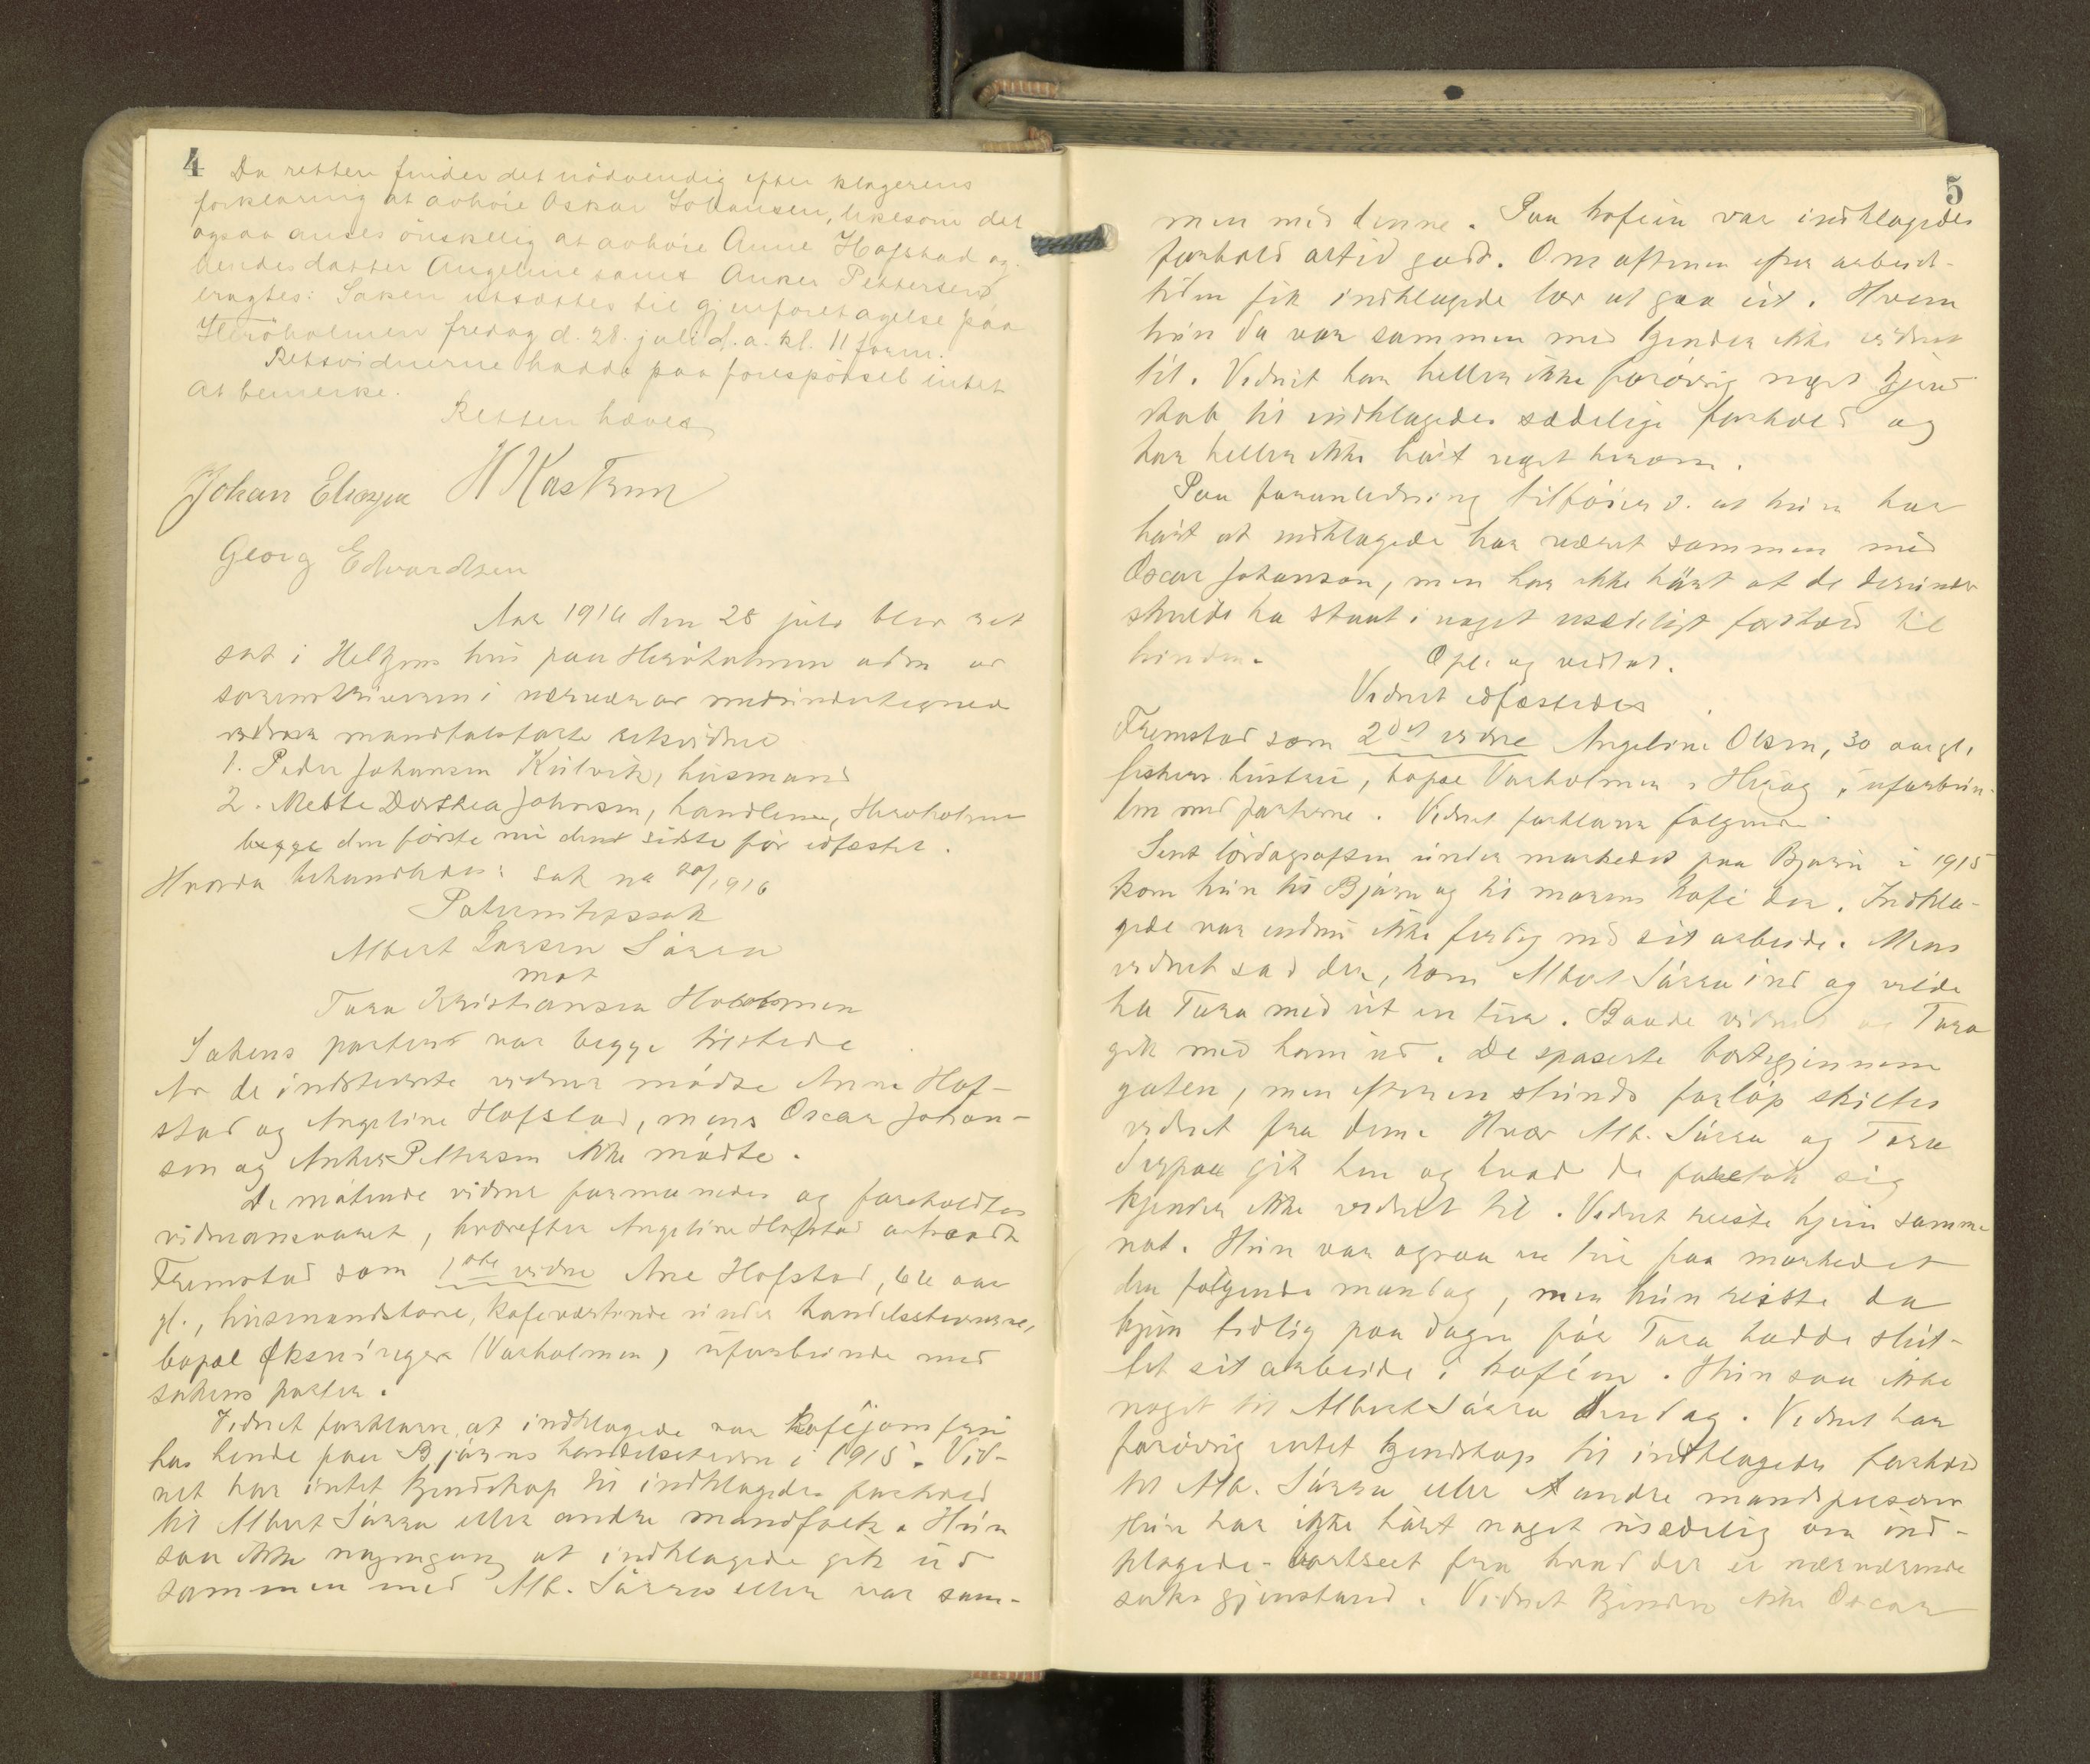 4
Da retten finder det nödvendig efter klagerens
forklaring at avhöre Oskar Johansen, likesom det
ogsaa anses önskelig at avhöre Anne Hofstad og
hendes datter Angeline samt Anker Pettersen,
eragtes: Saken utsættes til gjenforetagelse paa
Heröholmen fredag d. 28. juli d. a. kl. 11 form.
Retsvidnerne hadde paa forespörsel intet
at bemerke.
Retten hæves
Johan Eliassen H Kastrup
Georg Edvardsen
Aar 1916 den 28 juli blev ret
sat i Helgesens hus paa Heröholmen adm av
sorenskriveren i nærvær av medundertegnede
mandtalsførte retsvidner
1. Peder Johansen Kulvik, husmand
2. Mette Dorthea Johnsen, handlerske, Heröholmen
begge den förste nu den sidste för edfæstet.
Hvorda behandledes: sak nr 20/1916
Paternitetssak
Albert Larsen Sörra
mot
Tora Kristiansen Holmen
Sakens parter var begge tilstede
Av de indstevnte vidner mödte Anne Hof-
stad og Angeline Hofstad, mens Oscar Johan-
sen og Anker Pettersen ikke mödte.
De mötende vidner formanedes og foreholdtes
vidneansvaret, hvorefter Angeline Hofstad avtraadte
Fremstod som 1ste vidne Ane Hofstad, 64 aar
gl., husmandskone, kafeværtinde under handelsstevnerne,
bopæl Öksningen (Varholmen) uforbunde med
sakens parter.
Vidnet forklarer, at indklagede var kaféjomfru
hos hende paa Bjørns handelsstevne i 1915. Vid-
net har intet kjendskap til indklagedes forhold
til Albert Sörra eller andre mandfolk. Hun
saa ikke nogengang at indklagede gik ud
sammen med Alb. Sörra eller var sam-
5
men med denne. Paa kafeen var indklagedes
forhold altid godt. Om aftenen efter arbeids-
tiden fik indklagede lov at gaa ut. Hvem
hun da var sammen med kjender ikke vidnet
til. Vidnet har heller ikke forövrig noget kjend-
skab til indklagedes sædelige forhold og
har heller ikke hört noget herom.
Paa foranledning tilföier v. at hun har
hört at indklagede har været sammen med
Oscar Johanson, men har ikke hört at de derunder
skulde ha staat i noget usædeligt forhold til
hinden. Opl. og vedtat.
Vidnet edfæstedes
Fremstod som 2det vidne Angeline Olsen, 30 aar gl.
fiskers hustru, bopæl Varholmen i Heröy, uforbun-
den med parterne. Vidnet forklarer fölgende
Sent lördagsaften under markedet paa Bjørn i 1915
kom hun til Björn og til morens kafé der. Indkla-
gede var endnu ikke ferdig med sit arbeide. Mens
vidnet sad der, kom Albert Sörra ind og vilde
ha Tora med ut en tur. Baade vidnet og Tora
gik med ham ud. De spaserte bortigjennem
gaten, men efter en stunds forlöp skiltes
vidnet fra dem. Hvor Alb. Sörra og Tora
derpaa gik hen og hvad de foretok sig
kjender ikke vidnet til. Vidnet reiste hjem samme
nat. Hun var ogsaa en tur paa markedet
den fölgende mandag, men hun reiste da
hjem tidlig paa dagen för Tora hadde slut-
tet sit arbeide i kaféen. Hun saa ikke
noget til Albert Sörra den dag. Vidnet har
forövrig intet kjendskap til indklagedes forhold
til Alb. Sörra eller andre mandspersoner
Hun har ikke hört noget usædelig om ind-
klagede - bortseet fra hvad der er nærværende
saks gjenstand. Vidnet kjender ikke Oscar